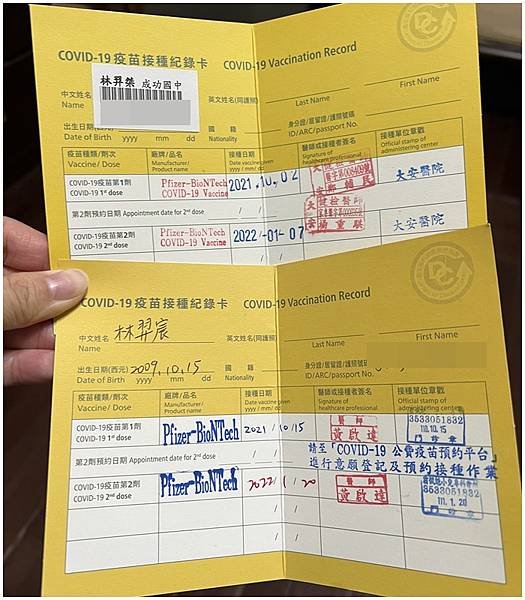 COVID-19 疫苗接種紀錄卡
COVID-19 Vaccination Record
林羿檠 成功國中
中文姓名
Name
英文姓名(同護照)
Last Name
First Name
出生日期
Date of Birth yyyy mm dd
國 籍
Nationality
身分證/居留證/護照號碼
ID/ARC/passport No.
疫苗種類/劑次
Vaccine/ Dose
廠牌/品名
Manufacturer/
Product name
接種日期
Date vaccine given
yyyy / mm / dd
醫師或接種者簽名
Signature of
healthcare professional
接種單位章戳
Official stamp of
administering center
COVID-19疫苗第1劑
COVID-19 1st dose
Pfizer-BioNTech
COVID-19 Vaccine
2021.10.02
大安醫院
第2劑預約日期 Appointment date for 2nd dose
/ /
COVID-19疫苗第2劑
COVID-19 2nd dose
Pfizer-BioNTech
COVID-19 Vaccine
2022-01-07
健檢醫師
大安醫院
/ /
COVID-19 疫苗接種紀錄卡
COVID-19 Vaccination Record
中文姓名
Name
林羿宸
英文姓名(同護照)
Last Name
First Name
出生日期(西元)
2009.10.15
Date of Birth yyyy mm dd
國 籍
Nationality
身分證/居留證/護照號
ID/ARC/passport No.
疫苗種類/劑次
Vaccine/ Dose
廠牌/品名
Manufacturer/
Product name
接種日期
Date vaccine given
yyyy / mm / dd
醫師或接種者簽名
Signature of
healthcare professional
接種單位章戳
Official stamp of
administering center
COVID-19疫苗第1劑
COVID-19 1st dose
Pfizer-BioNTech
2021/10/15
醫師
黃啟達
3533051832
110.10.15
門診章
第2劑預約日期 Appointment date for 2nd dose
/ /
請至「COVID-19 公費疫苗預約平台」
進行意願登記及預約接種作業
COVID-19疫苗第2劑
COVID-19 2nd dose
Pfizer-BioNTech
2022/1/20
醫師
黃啟達
3533051832
111.1.20
/ /
/ /
/ /